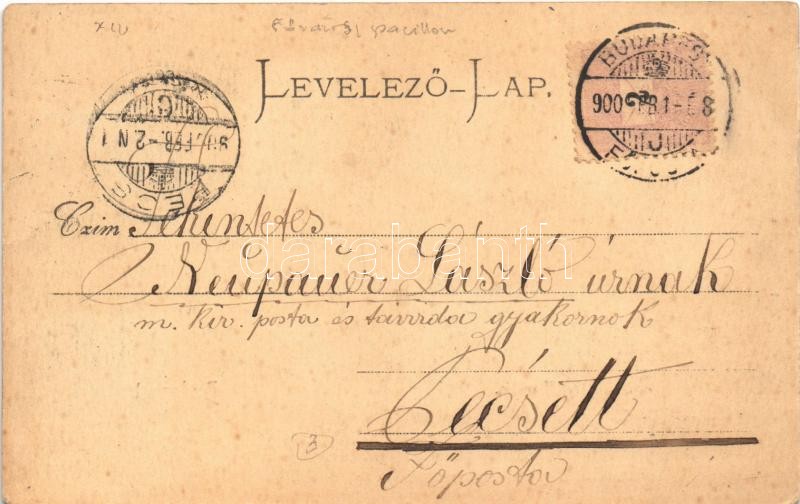 XIV
Fővárosi pavillon
LEVELEZŐ-LAP.
BUDAPEST
900 FEB. 1
PÉCS
FEB. -2. N 1
Czim Tekintetes
Neupauer László úrnak
m. kir. posta és távirda gyakornok
Pécsett
Főposta
3
darabanth